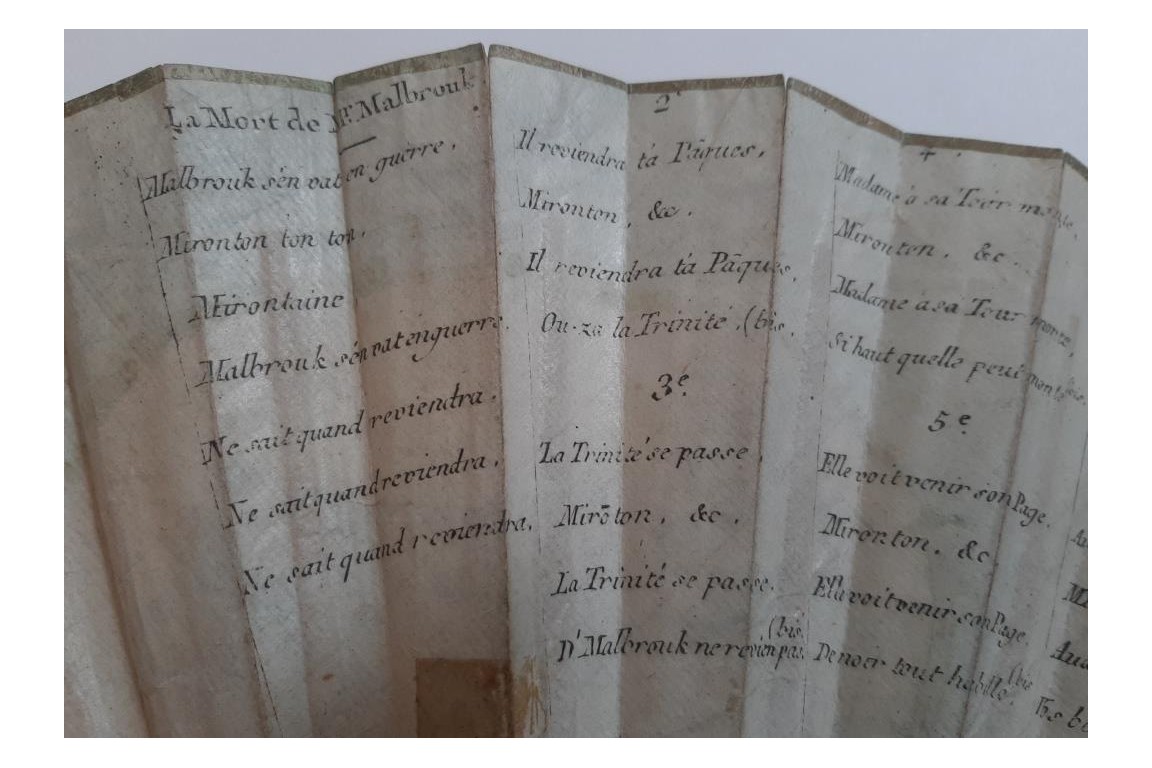 La Mort de Mr. Malbrouk
Malbrouk s'én vat en guerre.
Mironton ton ton,
Mirontaine
Malbrouk s'én vat en guerre.
Ne sait quand reviendra.
Ne sait quand reviendra.
Ne sait quand reviendra.
2e
Il reviendra t'a Pâques,
Mironton, &c.
Il reviendra t'a Pâques,
Ou-za la Trinité. (bis.
3e.
La Trinité se passe
Mirōton, &c.
La Trinité se passe.
(bis.
D' Malbrouk ne revien pas.
4
Madame à sa Tour monte,
Mironton, &c.
Madame à sa Tour monte,
Si haut quelle peut monté (bis.
5e.
Elle voit venir son Page.
Mironton, &c
Elle voit venir son Page.
(bis
De noir tout habillé.